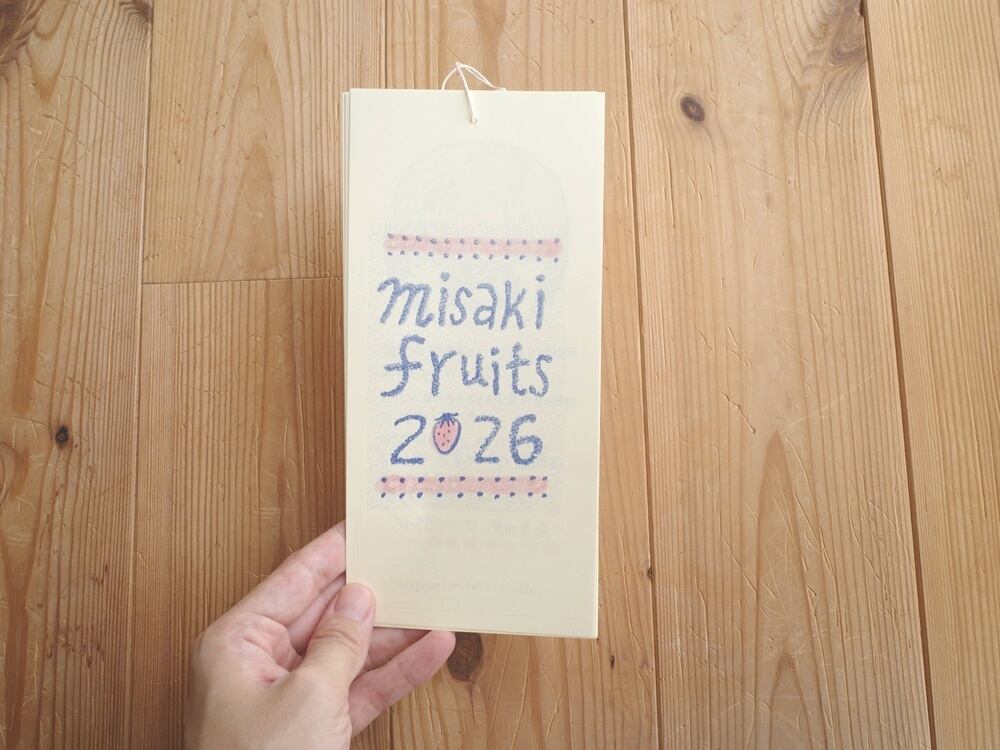 misaki
fruits
2026